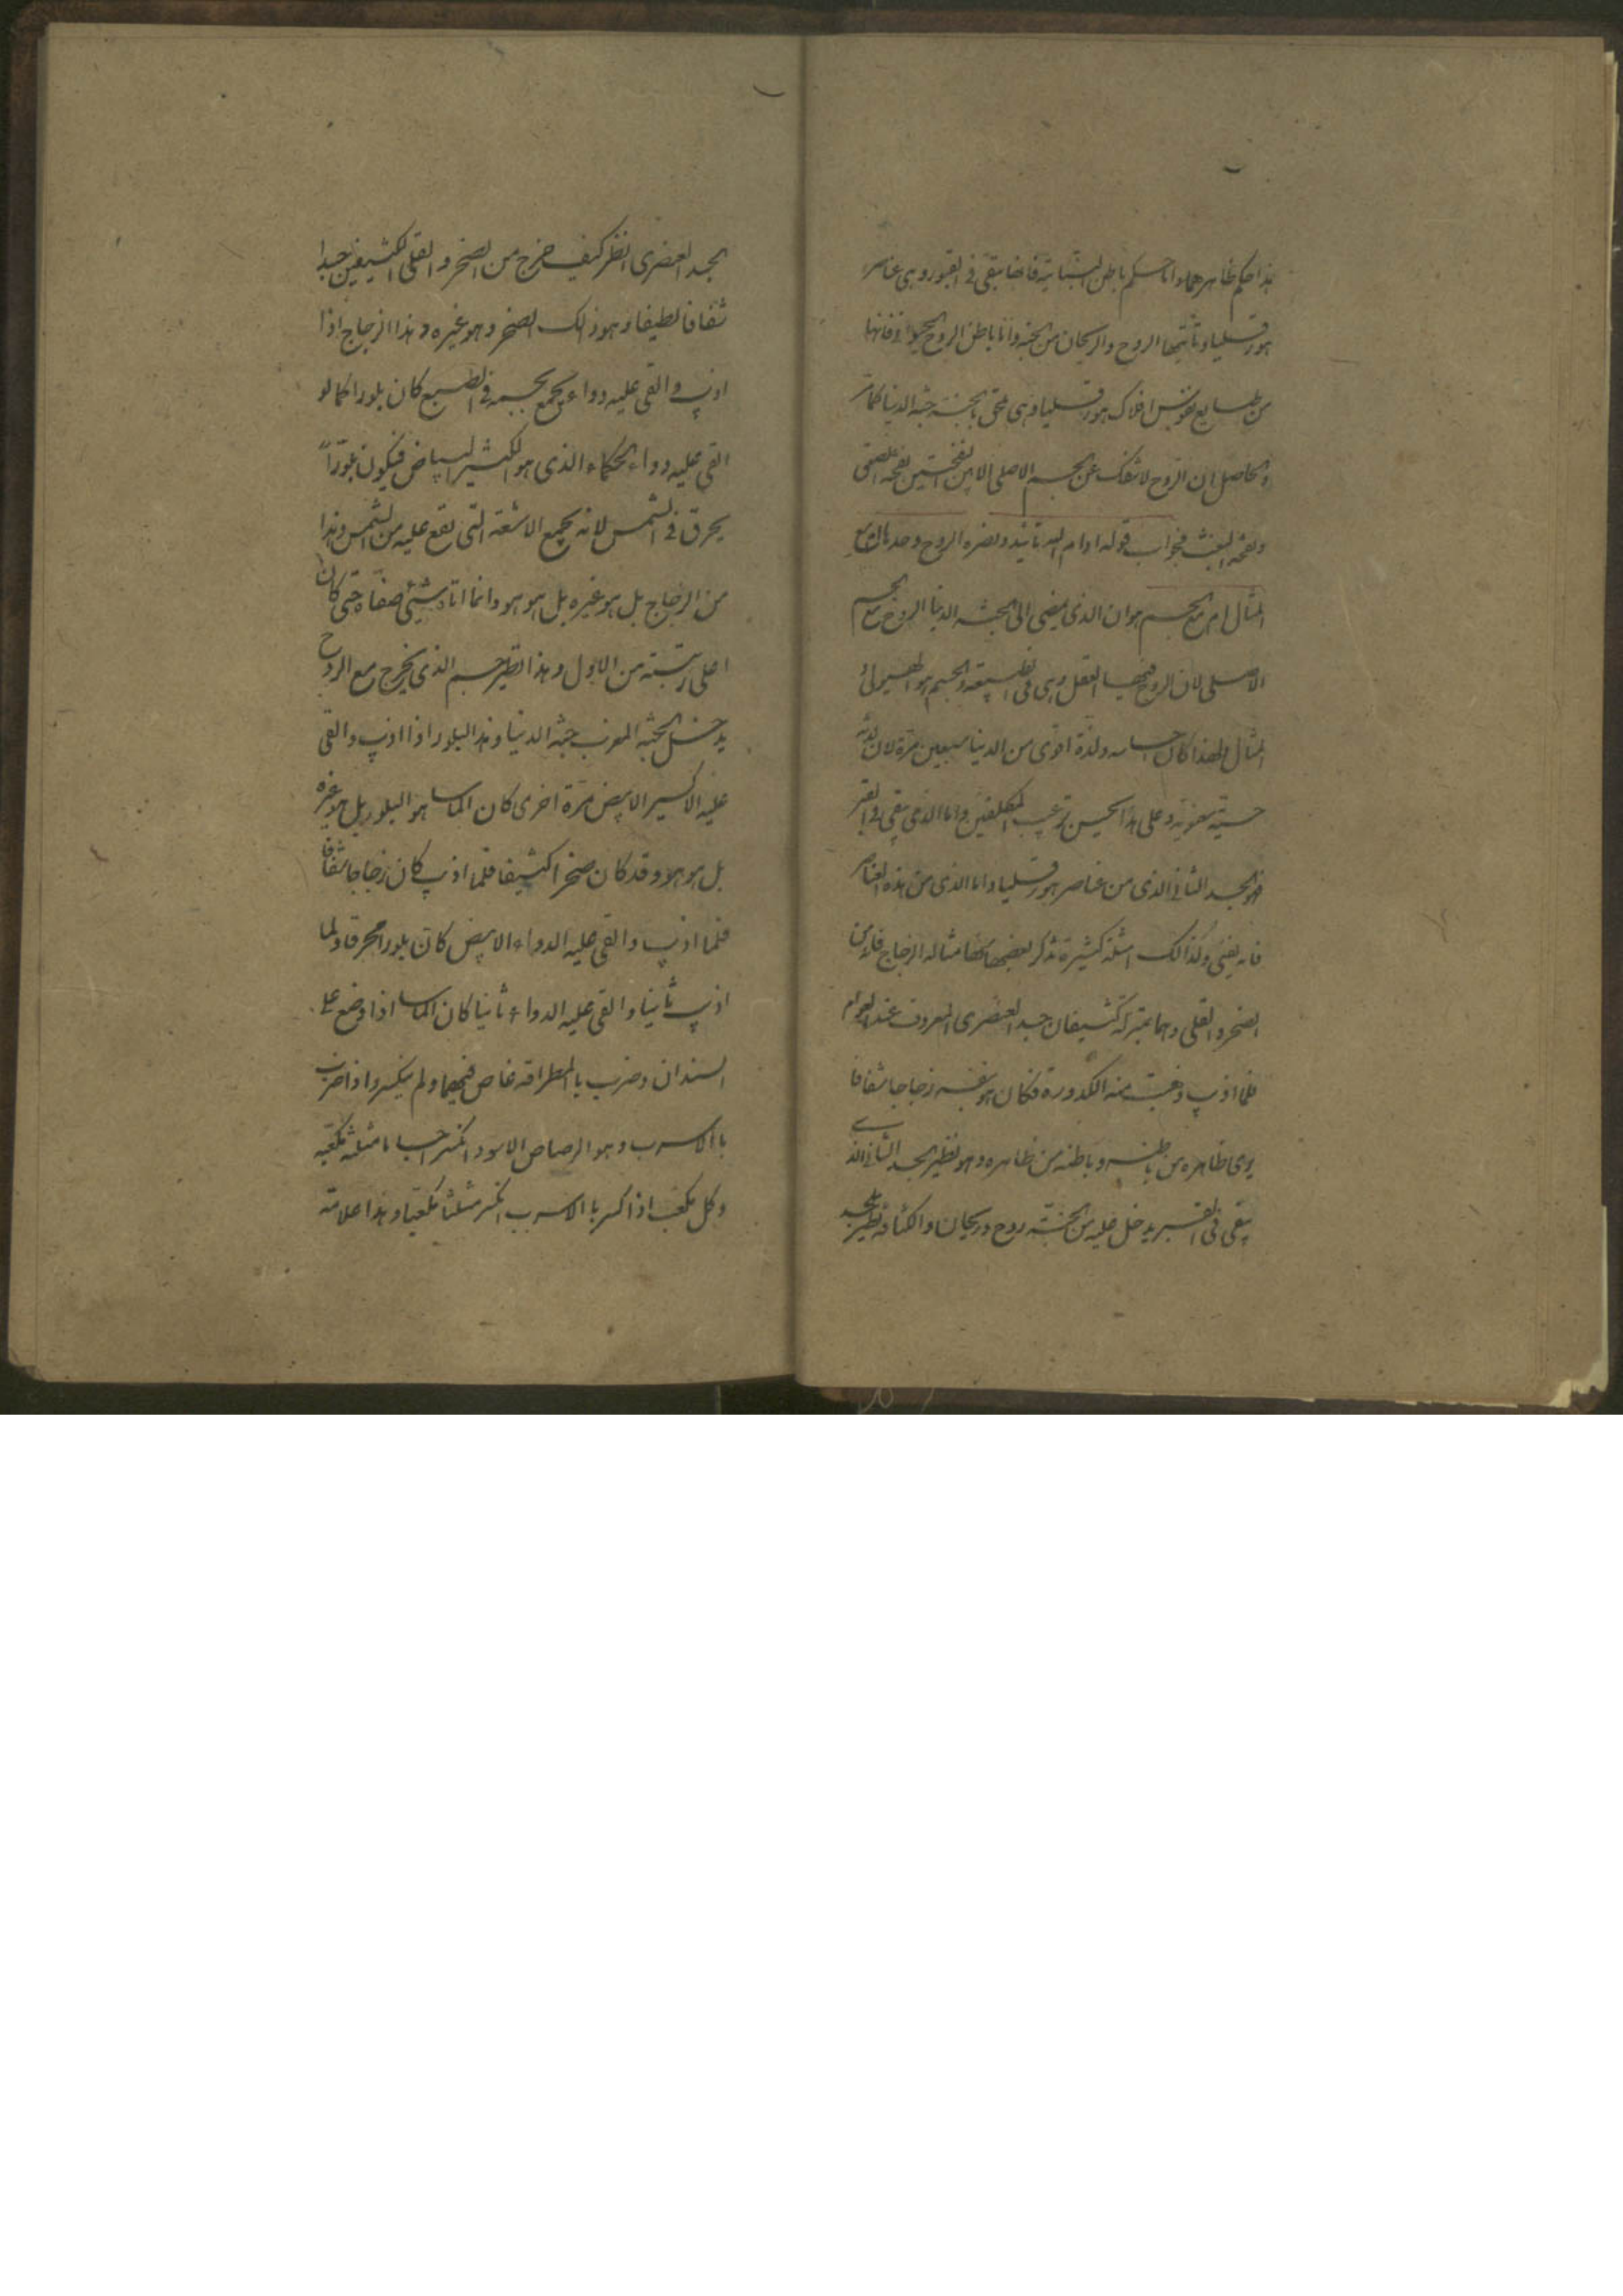 هذا حكم ظاهرهما و اما حكم باطن النباتية فانها تبقى في القبور و هي عناصر
هورقليا و يأتيها الروح و الريحان من الجنة و اما باطن الروح الحيوانى فانها
من طبايع نفوس افلاك هورقليا و هى تلحق بالجنة جنة الدنيا كما مر
و الحاصل ان الروح لا تنفك عن الجسم الاصلى الا بين النفختين نفخة الصعق
و نفخة البعث فجواب قوله ادام الله تأييده و نصره الروح وحدها ام مع
المثال ام مع الجسم هو ان الذى يمضى الى الجنة الدنيا الروح مع الجسم
الاصلى لان الروح فيها العقل و هى فى الطبيعة و الجسم هو الهيولى و
المثال و لهذا كان احساسه و لذته اقوى من الدنيا سبعين مرة لان لذته
حسية معنوية و على هذا الحسين ترتب المكلفين و اما الذى يبقى فى القبر
فهو الجسد الثانى الذى من عناصر هورقليا و اما الذى من هذه العناصر
فانه يفنى و لذالك امثلة كثيرة نذكر بعضها فمنها مثاله الزجاج فانه من
الصخر و القلى و هما بمنزلة كثيفان جسد العنصرى المعروف عند العوام
فلما اذيب ذهبت منه الكدورة فكان هو بنفسه زجاجا شفافا
يرى ظاهره من باطنه و باطنه من ظاهره و هو نظير الجسد الثانى الذى
يبقى فى القبر يدخل عليه من الجنة روح و ريحان و الكثافة نظير الجسد
الجسد العنصرى انظر كيف خرج من الصخر و القلى الكثيفين جسدا
شفافا لطيفا و هو ذالك الصخر و هو غيره و هذا الزجاج اذا
اذيب و القى عليه دواء يجمع بجسمه فى الطبع كان بلورا كما لو
القى عليه دواء الحكماء الذى هو اكسير البياض فيكون بلوراً
يحرق فى الشمس لانه يجمع الاشعة التى تقع عليه من الشمس و هذا
من الزجاج بل هو غيره بل هو هو و انما اتاه شيئ صفاه حتى كان
اعلى رتبة من الاول و هذا نظير جسم الذى يخرج مع الروح
يدخل الجنة المغرب جنة الدنيا و هذا البلور اذا اذيب و القى
عليه الاكسير الابيض مرة اخرى كان الماسا هو البلور بل هو غيره
بل هو هو و قد كان صخرا كثيفا فلما اذيب كان زجاجا شفافا
فلما اذيب و القى عليه الدواء الابيض كان بلورا محرقا و لما
اذيب ثانيا و القى عليه الدواء ثانيا كان الماسا اذا وضع على
السندان و ضرب بالمطراقة غاص فيها و لم ينكسر و اذا ضرب
بالاسرب و هو الرصاص الاسود انكسر حبابا مثلثة مكعبه
و كل مكعب اذا كسر بالاسرب انكسر مثلثا مكعبا و هذا علامة